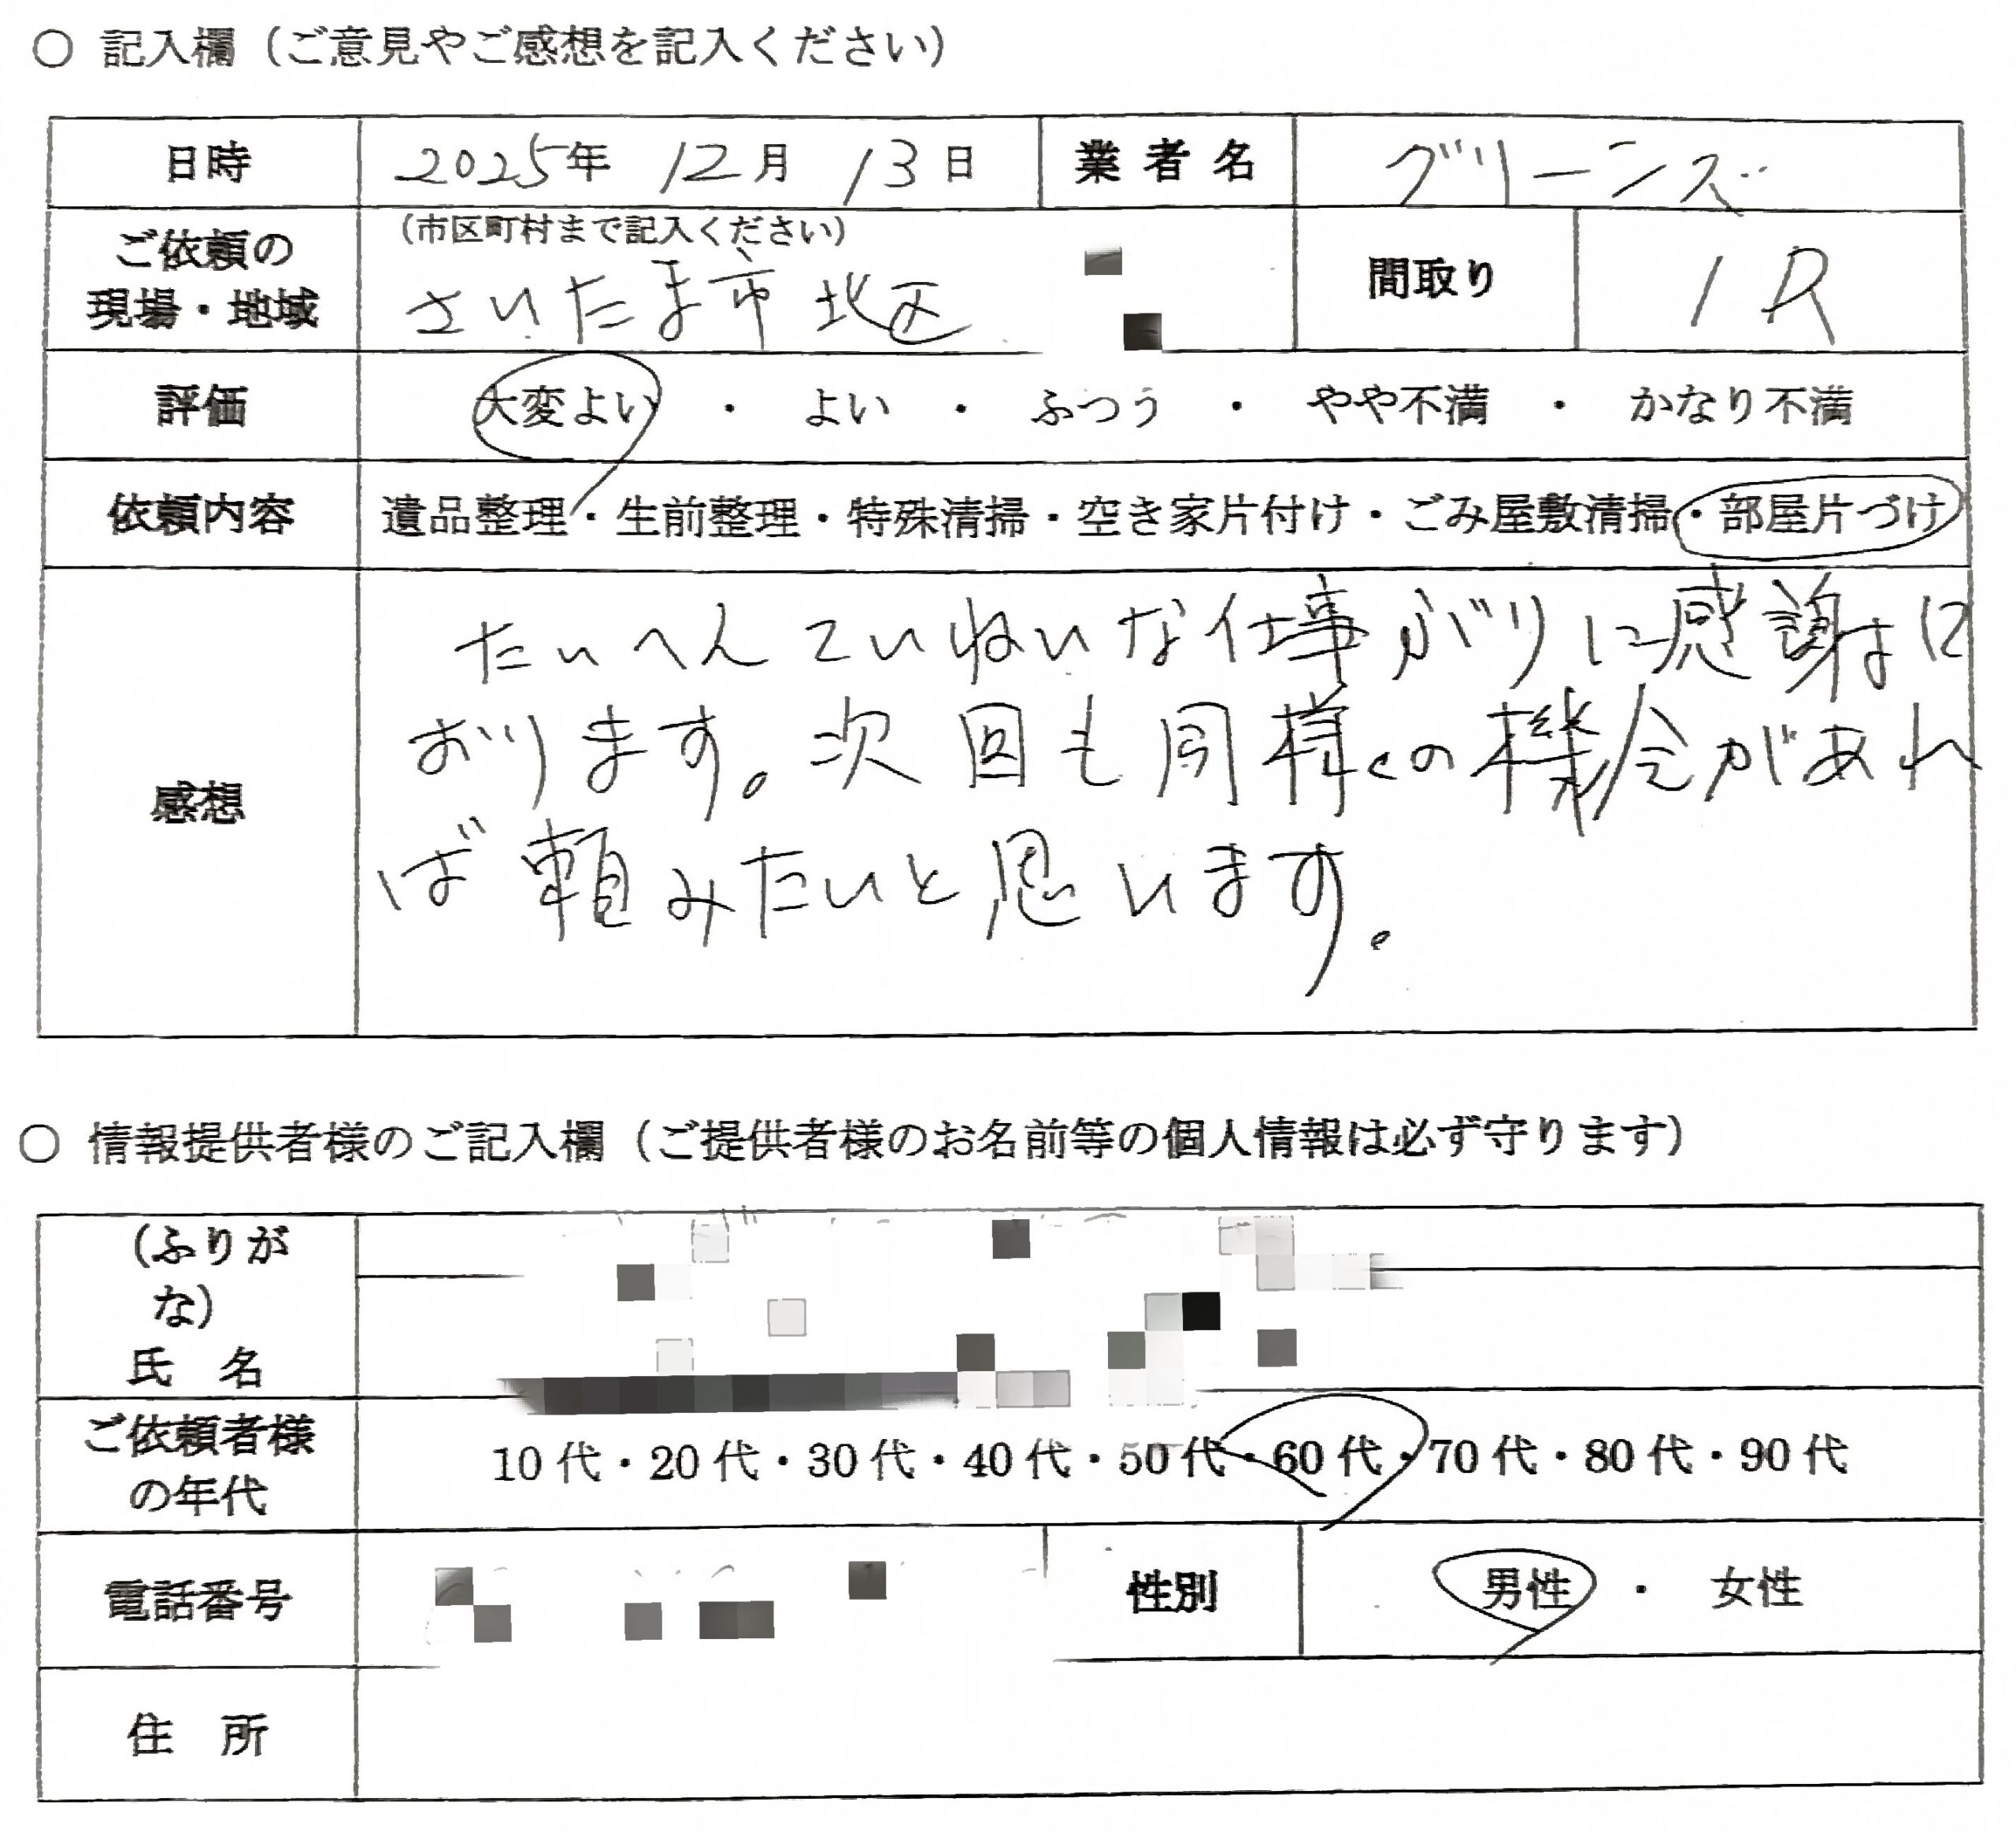 ○ 記入欄（ご意見やご感想を記入ください）
日時 2025年 12月 13日 業者名 グリーンズ
ご依頼の現場・地域 （市区町村まで記入ください） 間取り 1R
さいたま市北区
評価 大変よい ・ よい ・ ふつう ・ やや不満 ・ かなり不満
依頼内容 遺品整理・生前整理・特殊清掃・空き家片付け・ごみ屋敷清掃・部屋片づけ
感想
たいへんていねいな仕事がりに感謝して
おります。次回も同様の機会があれ
ば頼みたいと思います。
○ 情報提供者様のご記入欄（ご提供者様のお名前等の個人情報は必ず守ります）
（ふりが
な）
氏 名
ご依頼者様
の年代 10代・20代・30代・40代・50代・60代・70代・80代・90代
電話番号 性別 男性 ・ 女性
住 所